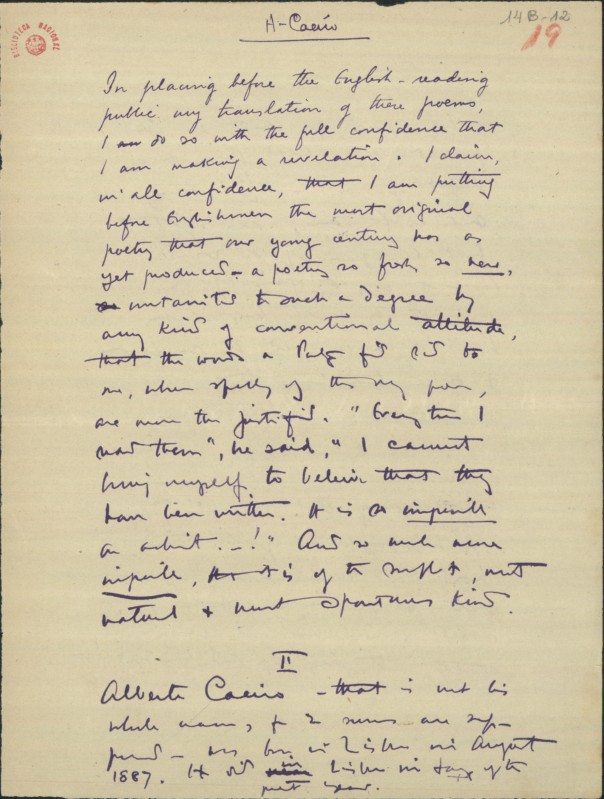 A. Caeiro
14B-12
19
BIBLIOTECA NACIONAL
In placing before the English-reading
public my translation of these poems,
I am do so with the full confidence that
I am making a revelation. I claim,
in all confidence, that I am putting
before Englishmen the most original
poetry that our young century has as
yet produced - a poetry so fresh, so new,
untainted to such a degree by
any kind of conventional attitude,
that the words a Portg. friend said to
me, when speaking of these very poems,
are more than justified. "Every time I
read them", he said, "I cannot
bring myself to believe that they
have been written. It is so impossible
an achievt. - !" And so much more
impossible, that it is of the simplest, most
natural & most spontaneous kind.
II
Alberto Caeiro - that is not his
whole name, for 2 names are sup-
pressed - was born in Lisbon in August
1887. He died in Lisbon in of the
past year.